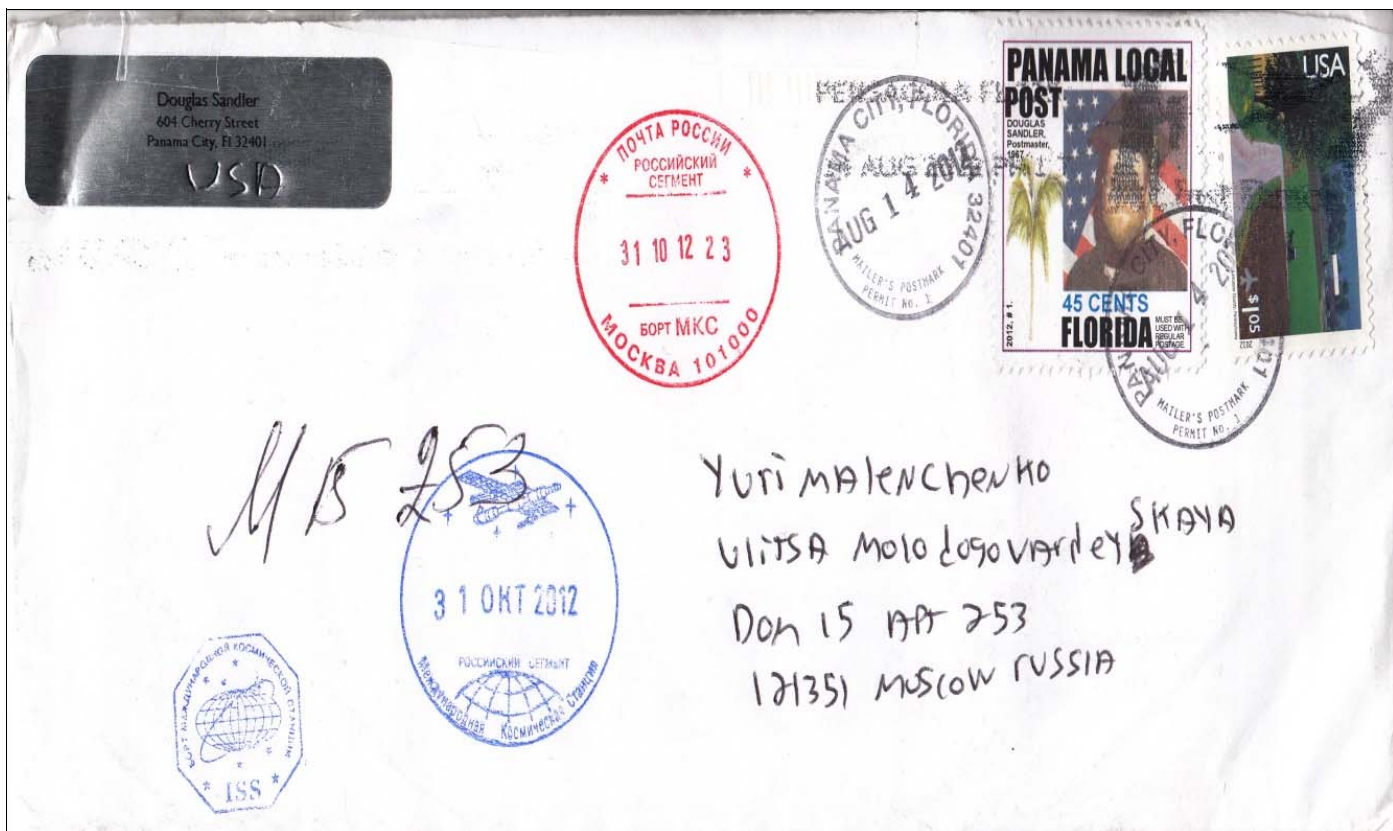 Douglas Sandler
604 Cherry Street
Panama City, Fl 32401
USA
ПОЧТА РОССИИ
РОССИЙСКИЙ
СЕГМЕНТ
31 10 12 23
БОРТ МКС
МОСКВА 101000
PANAMA CITY, FLORIDA 32401
AUG 14 2012
MAILER'S POSTMARK
PERMIT No. 1
PANAMA LOCAL
POST
DOUGLAS
SANDLER,
Postmaster,
1967
45 CENTS
FLORIDA
MUST BE
USED WITH
REGULAR
POSTAGE.
2012, # 1.
USA
$1.05
2012
MAILER'S POSTMARK
PERMIT No. 1
МБ 253
31 ОКТ 2012
РОССИЙСКИЙ СЕГМЕНТ
Международная Космическая Станция
БОРТ МЕЖДУНАРОДНОЙ КОСМИЧЕСКОЙ СТАНЦИИ
ISS
Yuri MAlenChenko
UlitsA MolodogovArdeySKAYA
Dom 15 APt 253
121351 Moscow rUSSIA